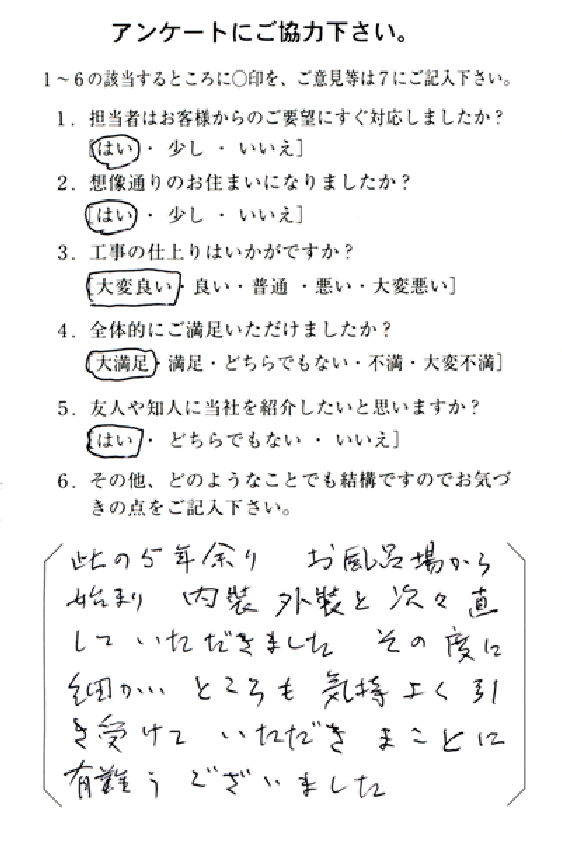 アンケートにご協力下さい。
1～6の該当するところに〇印を、ご意見等は7にご記入下さい。
1．担当者はお客様からのご要望にすぐ対応しましたか？
[はい・ 少し ・ いいえ]
2．想像通りのお住まいになりましたか？
[はい・ 少し ・ いいえ]
3．工事の仕上りはいかがですか？
[大変良い・良い・普通 ・悪い・大変悪い]
4．全体的にご満足いただけましたか？
[大満足・満足・どちらでもない・不満・大変不満]
5．友人や知人に当社を紹介したいと思いますか？
[はい・ どちらでもない ・ いいえ]
6．その他、どのようなことでも結構ですのでお気づ
きの点をご記入下さい。
此の5年余り お風呂場から
始まり 内装 外装と 次々 直
して いただきました その 度に
細かい ところも 気持 よく 引
き受けて いただき まことに
有難う ございました